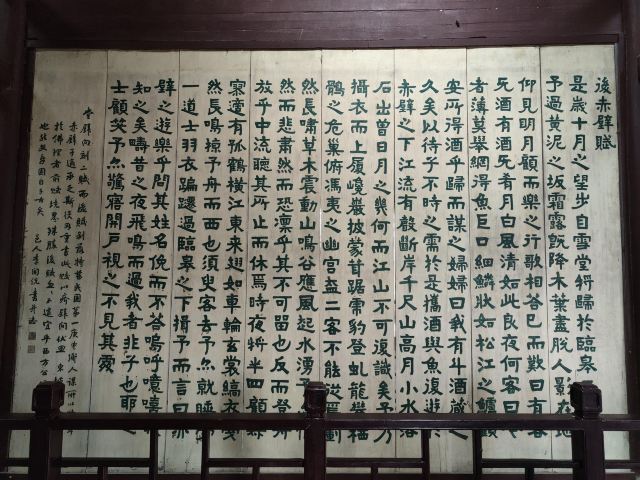 後赤壁賦
是歲十月之望步自雪堂將歸於臨皋
予過黃泥之坂霜露既降木葉盡脫人影在地
仰見明月顧而樂之行歌相答已而歎曰有客
无酒有酒无肴月白風清如此良夜何客曰今
者薄莫舉網得魚巨口細鱗狀如松江之鱸顧
安所得酒乎歸而謀之婦婦曰我有斗酒藏之
久矣以待子不時之需於是攜酒與魚復遊於
赤壁之下江流有聲斷岸千尺山高月小水落
石出曾日月之幾何而江山不可復識矣予乃
攝衣而上履巉巖披蒙茸踞虎豹登虬龍攀棲
鶻之危巢俯馮夷之幽宮蓋二客不能從焉劃
然長嘯草木震動山鳴谷應風起水湧予亦
然而悲肅然而恐凜乎其不可留也反而登舟
放乎中流聽其所止而休焉時夜將半四顧寂
寥適有孤鶴橫江東來翅如車輪玄裳縞衣戛
然長鳴掠予舟而西也須臾客去予亦就睡夢
一道士羽衣蹁躚過臨皋之下揖予而言曰赤
壁之遊樂乎問其姓名俛而不答嗚呼噫嘻我
知之矣疇昔之夜飛鳴而過我者非子也耶道
士顧笑予亦驚寤開戶視之不見其處